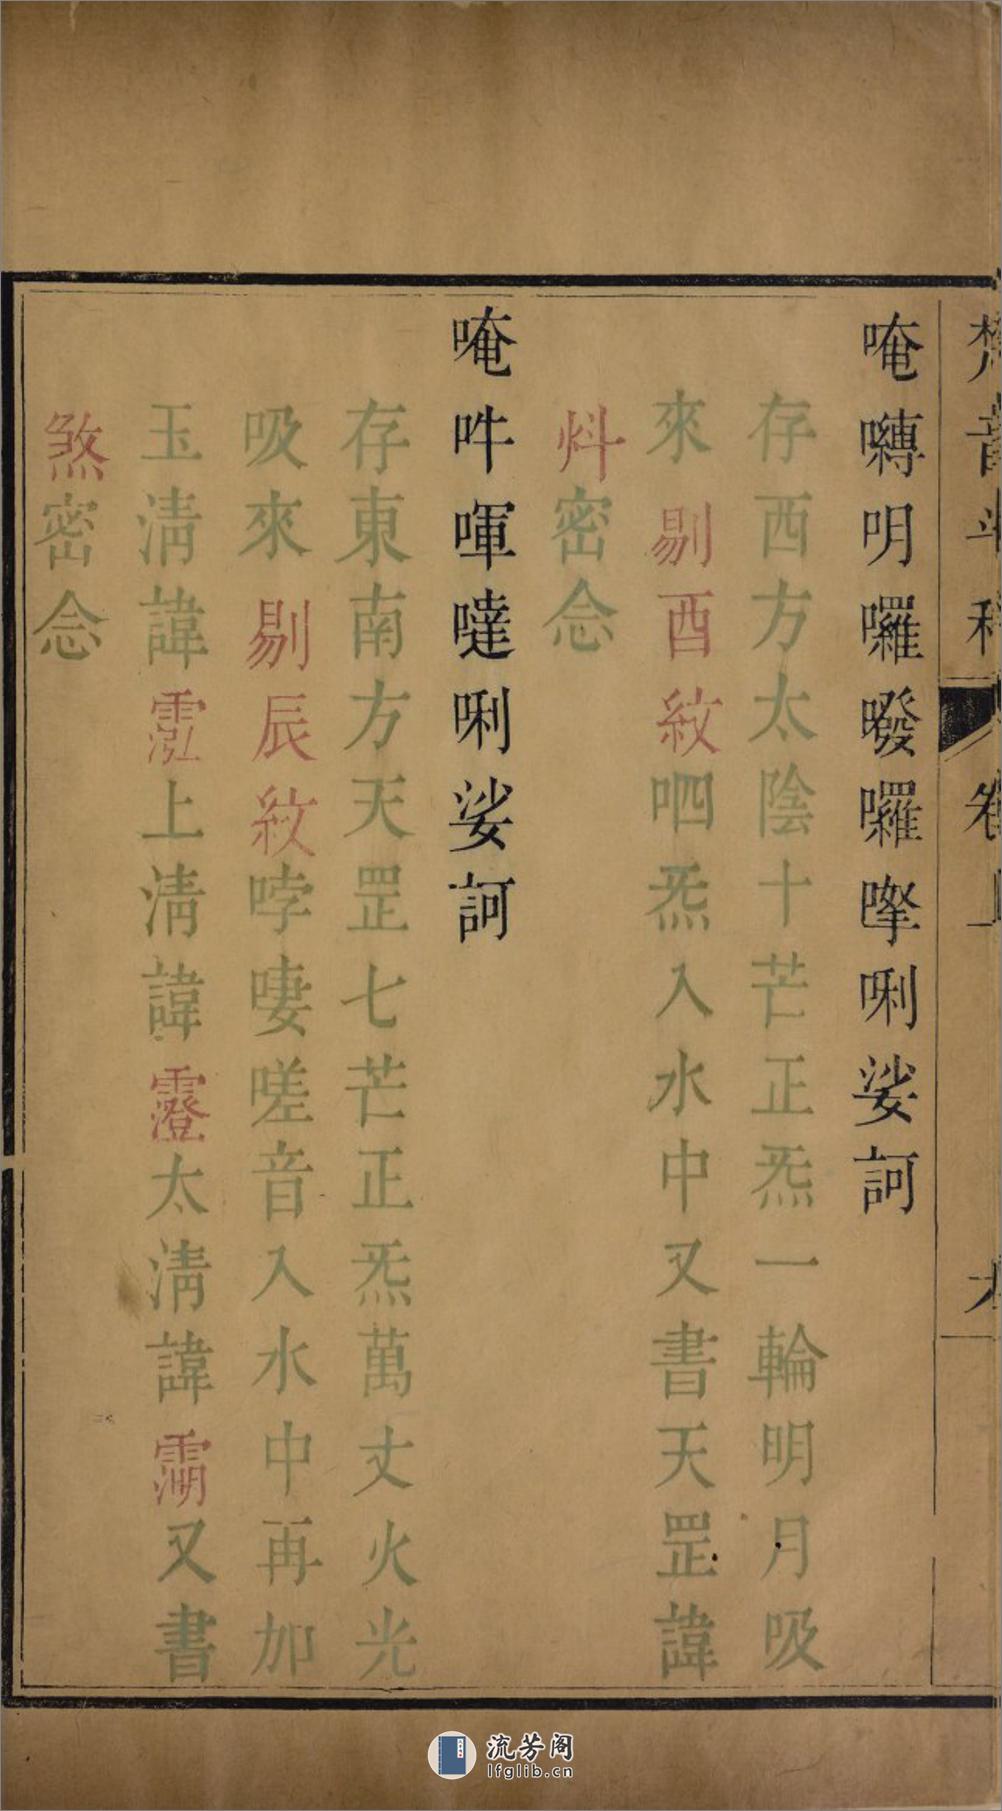 梵音斗科
唵囀明囉㗶囉㘑唎娑訶
存西方太陰十芒正炁一輪明月吸
來剔酉紋呬炁入水中又書天罡諱
密念
唵吽喗噠唎娑訶
存東南方天罡七芒正炁萬丈火光
吸來剔辰紋哱㗭嗟音入水中再加
玉清諱上清諱靈太清諱又書
煞密念
流芳阁
lfglib.cn